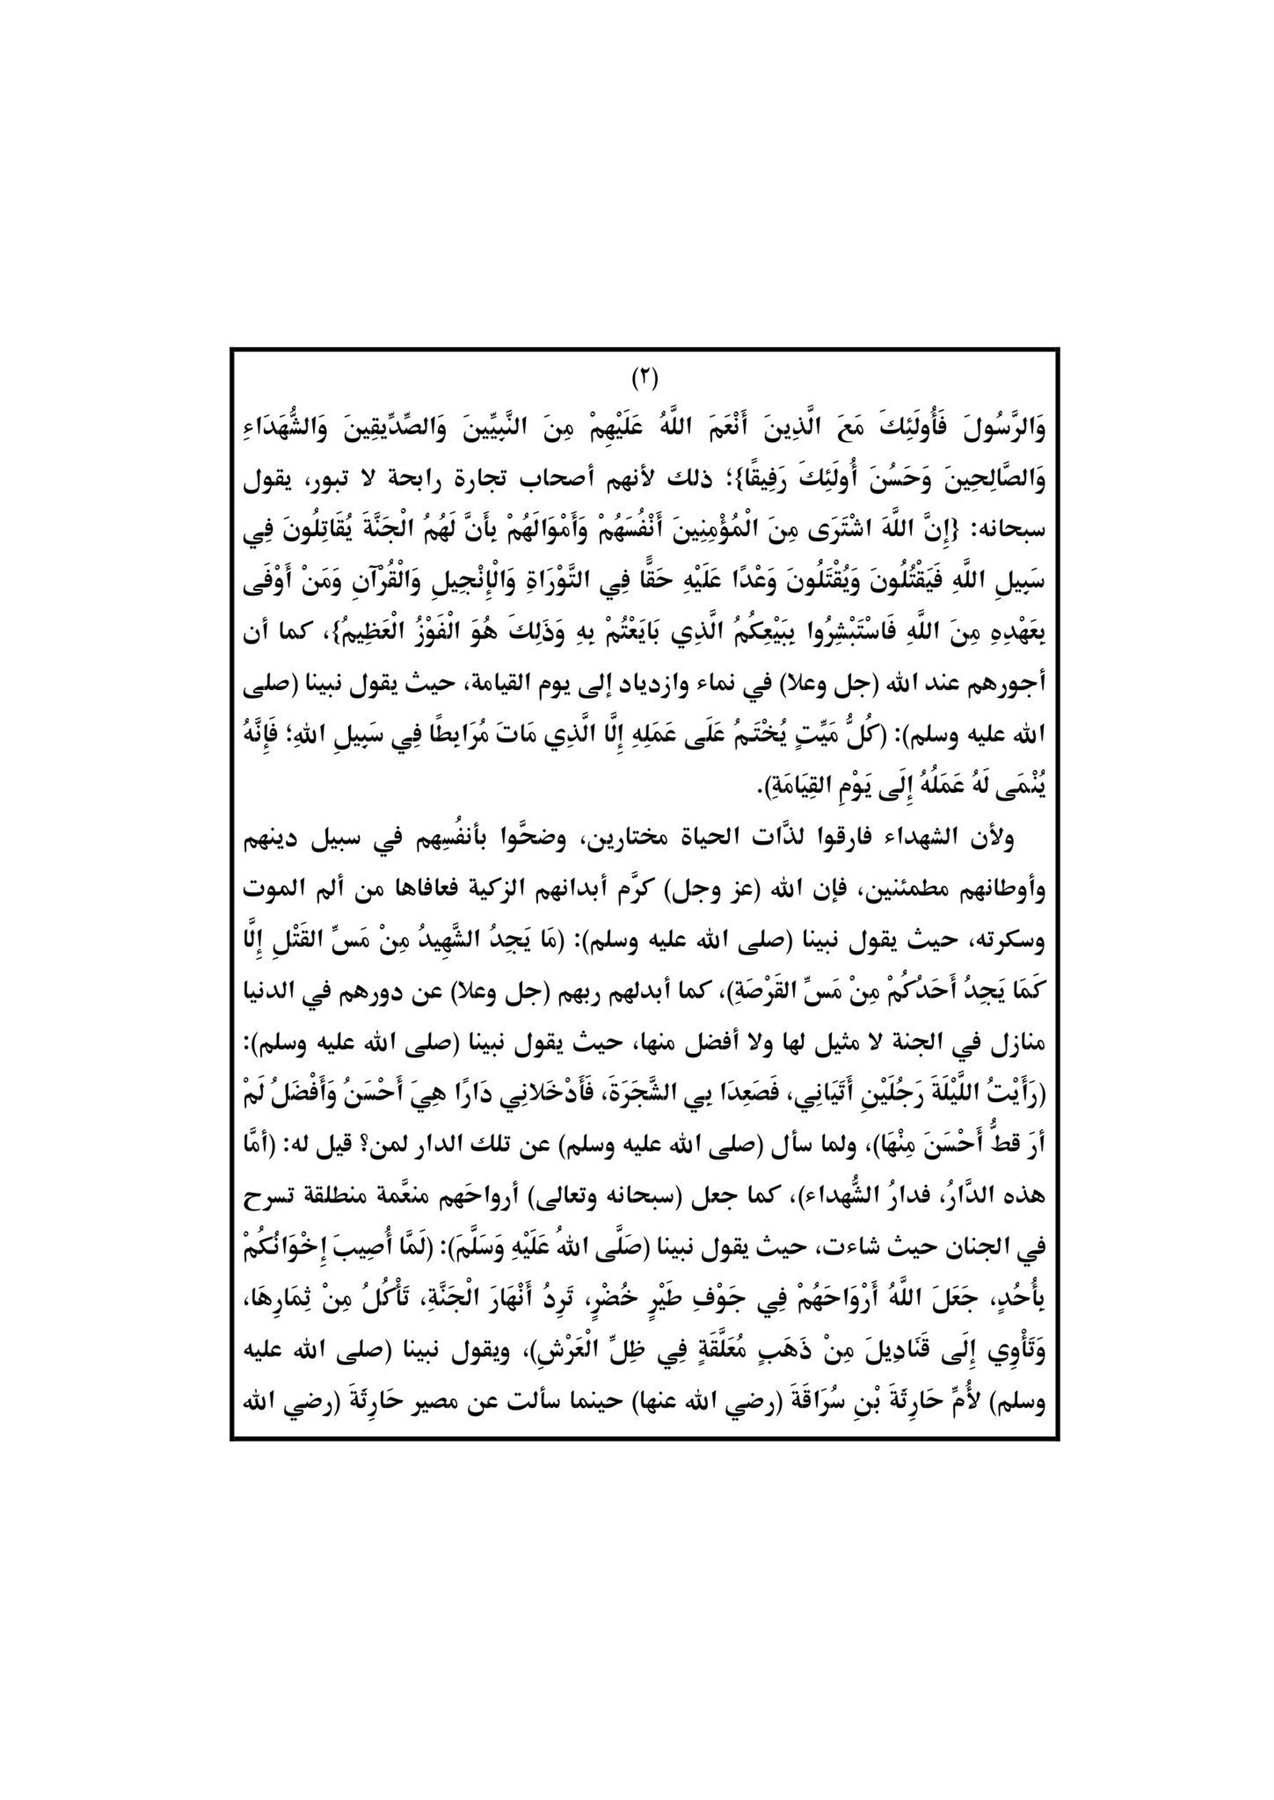 (٢)
وَالرَّسُولَ فَأُولَئِكَ مَعَ الَّذِينَ أَنْعَمَ اللَّهُ عَلَيْهِمْ مِنَ النَّبِيِّينَ وَالصِّدِّيقِينَ وَالشُّهَدَاءِ
وَالصَّالِحِينَ وَحَسُنَ أُولَئِكَ رَفِيقًا}؛ ذلك لأنهم أصحاب تجارة رابحة لا تبور، يقول
سبحانه: {إِنَّ اللَّهَ اشْتَرَى مِنَ الْمُؤْمِنِينَ أَنْفُسَهُمْ وَأَمْوَالَهُمْ بِأَنَّ لَهُمُ الْجَنَّةَ يُقَاتِلُونَ فِي
سَبِيلِ اللَّهِ فَيَقْتُلُونَ وَيُقْتَلُونَ وَعْدًا عَلَيْهِ حَقًّا فِي التَّوْرَاةِ وَالْإِنْجِيلِ وَالْقُرْآنِ وَمَنْ أَوْفَى
بِعَهْدِهِ مِنَ اللَّهِ فَاسْتَبْشِرُوا بِبَيْعِكُمُ الَّذِي بَايَعْتُمْ بِهِ وَذَلِكَ هُوَ الْفَوْزُ الْعَظِيمُ}، كما أن
أجورهم عند الله (جل وعلا) في نماء وازدياد إلى يوم القيامة، حيث يقول نبينا (صلى
الله عليه وسلم): (كُلُّ مَيِّتٍ يُخْتَمُ عَلَى عَمَلِهِ إِلَّا الَّذِي مَاتَ مُرَابِطًا فِي سَبِيلِ اللهِ؛ فَإِنَّهُ
يُنْمَى لَهُ عَمَلُهُ إِلَى يَوْمِ القِيَامَةِ).
ولأن الشهداء فارقوا لذَّات الحياة مختارين، وضحَّوا بأنفُسِهم في سبيل دينهم
وأوطانهم مطمئنين، فإن الله (عز وجل) كرَّم أبدانهم الزكية فعافاها من ألم الموت
وسكرته، حيث يقول نبينا (صلى الله عليه وسلم): (مَا يَجِدُ الشَّهِيدُ مِنْ مَسِّ القَتْلِ إِلَّا
كَمَا يَجِدُ أَحَدُكُمْ مِنْ مَسِّ القَرْصَةِ)، كما أبدلهم ربهم (جل وعلا) عن دورهم في الدنيا
منازل في الجنة لا مثيل لها ولا أفضل منها، حيث يقول نبينا (صلى الله عليه وسلم):
(رَأَيْتُ اللَّيْلَةَ رَجُلَيْنِ أَتَيَانِي، فَصَعِدَا بِي الشَّجَرَةَ، فَأَدْخَلانِي دَارًا هِيَ أَحْسَنُ وَأَفْضَلُ لَمْ
أرَ قطُّ أَحْسَنَ مِنْهَا)، ولما سأل (صلى الله عليه وسلم) عن تلك الدار لمن؟ قيل له: (أمَّا
هذه الدَّارُ، فدارُ الشُّهداء)، كما جعل (سبحانه وتعالى) أرواحَهم منعَّمة منطلقة تسرح
في الجنان حيث شاءت، حيث يقول نبينا (صَلَّى اللهُ عَلَيْهِ وَسَلَّمَ): (لَمَّا أُصِيبَ إِخْوَانُكُمْ
بِأُحُدٍ، جَعَلَ اللَّهُ أَرْوَاحَهُمْ فِي جَوْفِ طَيْرٍ خُضْرٍ، تَرِدُ أَنْهَارَ الْجَنَّةِ، تَأْكُلُ مِنْ ثِمَارِهَا،
وَتَأْوِي إِلَى قَنَادِيلَ مِنْ ذَهَبٍ مُعَلَّقَةٍ فِي ظِلِّ الْعَرْشِ)، ويقول نبينا (صلى الله عليه
وسلم) لأُمِّ حَارِثَةَ بْنِ سُرَاقَةَ (رضي الله عنها) حينما سألت عن مصير حَارِثَةَ (رضي الله